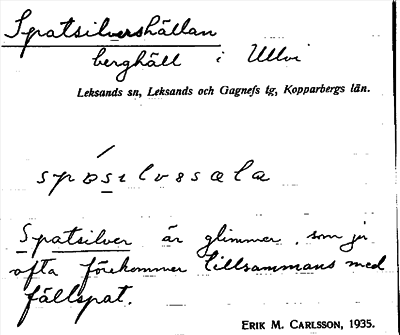 Spatsilvershällan
berghäll i Ullvi
Leksands sn, Leksands och Gagnefs tg, Kopparbergs län.
Spatsilver är glimmer, som ju
ofta förekommer tillsammans med
fältspat.
ERIK M. CARLSSON, 1935.